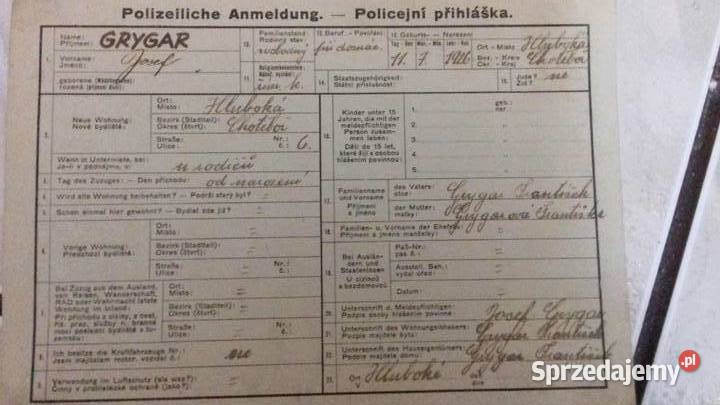 Polizeiliche Anmeldung. — Policejní přihláška.
1. Name: Příjmení: GRYGAR
Vorname: Jméno: Josef
geborene (Mädchenname) rozená (příjmení dívčí)
10. Familienstand: Rodinný stav: svobodný
11. řím. k.
12. Beruf. - Povolání
13. Geburts- - Narození
Tag - Den Mon. - Měs. Jahr - Rok
11. 7. 1926
Ort - Místo Hluboká
Bez. - Kres Okr. - Kraj Chotěboř
14. Staatszugehörigkeit: Státní příslušnost:
15. Jude? Žid? ne
2. Neue Wohnung: Nové bydliště:
Ort: Místo: Hluboká
Bezirk (Stadtteil): Okres (čtvrť): Chotěboř
Straße: Ulice: Nr.: č.: 6.
Wenn in Untermiete, bei: Je-li v podnájmu, u: u rodičů
3. Tag des Zuzuges: — Den příchodu: od narození
4. Wird alte Wohnung beibehalten? — Podrží starý byt? "
5. Schon einmal hier gewohnt? — Bydlel zde již? "
6. Vorige Wohnung: Předchozí bydliště:
Ort: Místo: "
Bezirk (Stadtteil): Okres (čtvrť): "
Straße: Ulice: Nr.: č.: "
7. Bei Zuzug aus dem Ausland, von Reisen, Wanderschaft, RAD oder Wehrmacht letzte Wohnung im Inland:
Při příchodu z ciziny, z cest, říš. prac. služby n. branné moci poslední bydliště v tuzemsku:
Ort: Místo: "
Bezirk (Stadtteil): Okres (čtvrť): "
Straße: Ulice: Nr.: č.: "
8. Ich besitze die Kraftfahrzeuge Nr.: Jsem majitelem motor. vozidel č.: ne
9. Verwendung im Luftschutz (als was?): Činný v protiletecké ochraně (jako): "
16. Kinder unter 15 Jahren, die mit der meldepflichtigen Person zusammen leben:
Děti do 15 let, které žijí s osobou hlášením povinnou:
geb.: nar.:
1.
2.
3.
4.
5.
17. Familienname und Vorname Příjmení a jméno
des Vaters: otce: Grygar František
der Mutter: matky: Grygarová Františka
18. Familien- u. Vorname der Ehefrau: Příjmení a jméno manželky:
19. Bei Ausländern und Staatenlosen U cizinců a bezdomovců
Paß-Nr.: pas č.:
Ausstell. Beh.: vydal úřad:
Datum:
20. Unterschrift d. Meldepflichtigen: Podpis osoby hlášením povinné: Josef Grygar
21. Unterschrift des Wohnungsinhabers: Podpis majitele bytu: Grygar František
22. Unterschrift des Hauseigentümers: Podpis majitele domu: Grygar František
23. Hluboké
Sprzedajemy.pl